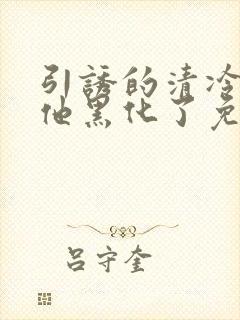 引誘的清冷
他黑化了免
吕守奎